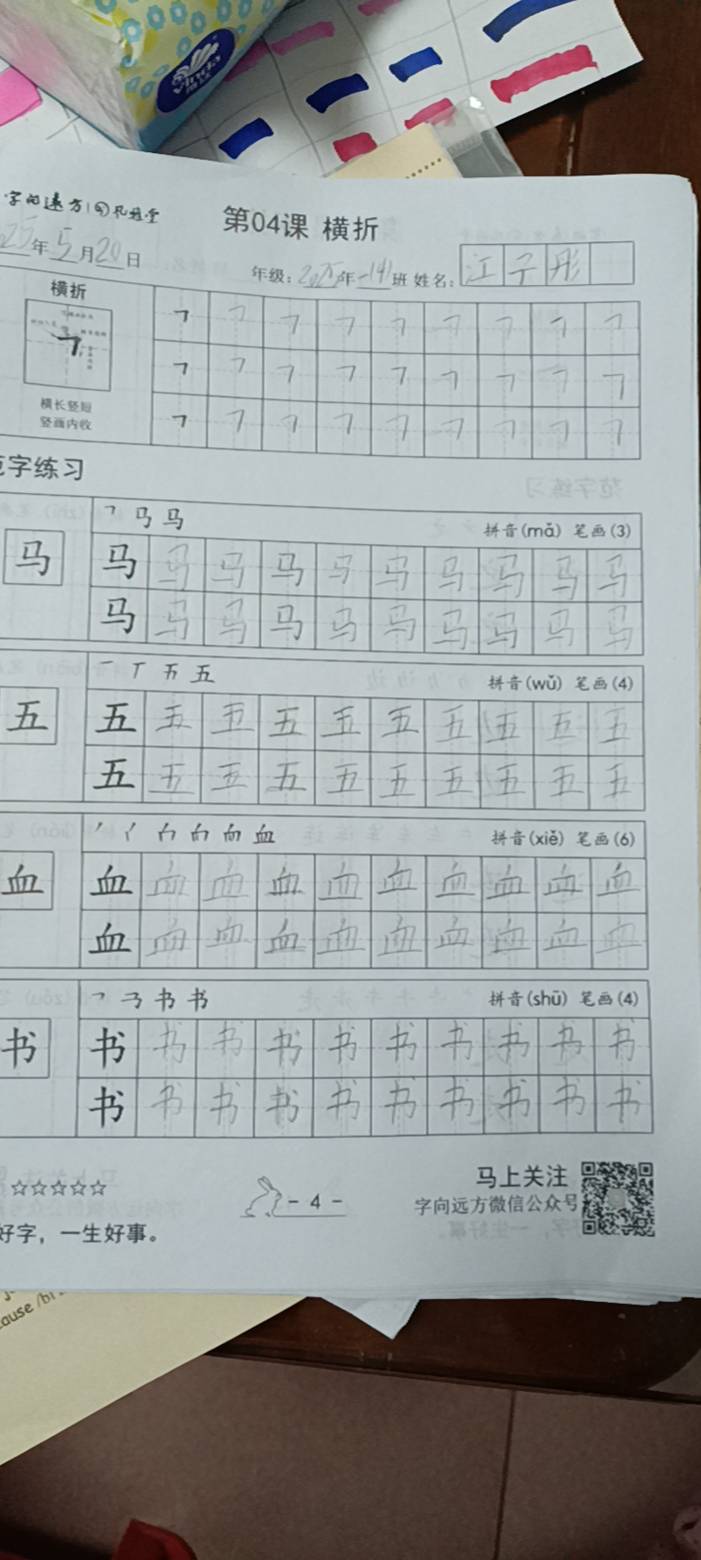 字向远方
第04课 横折
25年5月20日
年级：2025年一(4)班 姓名：江子彤
横折
横长竖短
竖画内收
范字练习
马 拼音(mǎ) 笔画(3)
马 马 马 马 马 马 马 马 马 马 马
马 马 马 马 马 马 马 马 马 马
一 丅 五 拼音(wǔ) 笔画(4)
五 五 五 五 五 五 五 五 五 五 五
五 五 五 五 五 五 五 五 五 五
血 拼音(xiě) 笔画(6)
血 血 血 血 血 血 血 血 血 血 血
血 血 血 血 血 血 血 血 血 血
书 拼音(shū) 笔画(4)
书 书 书 书 书 书 书 书 书 书 书
书 书 书 书 书 书 书 书 书 书
☆☆☆☆☆
- 4 -
马上关注
字向远方微信公众号
好字，一生好事。
ause /bi